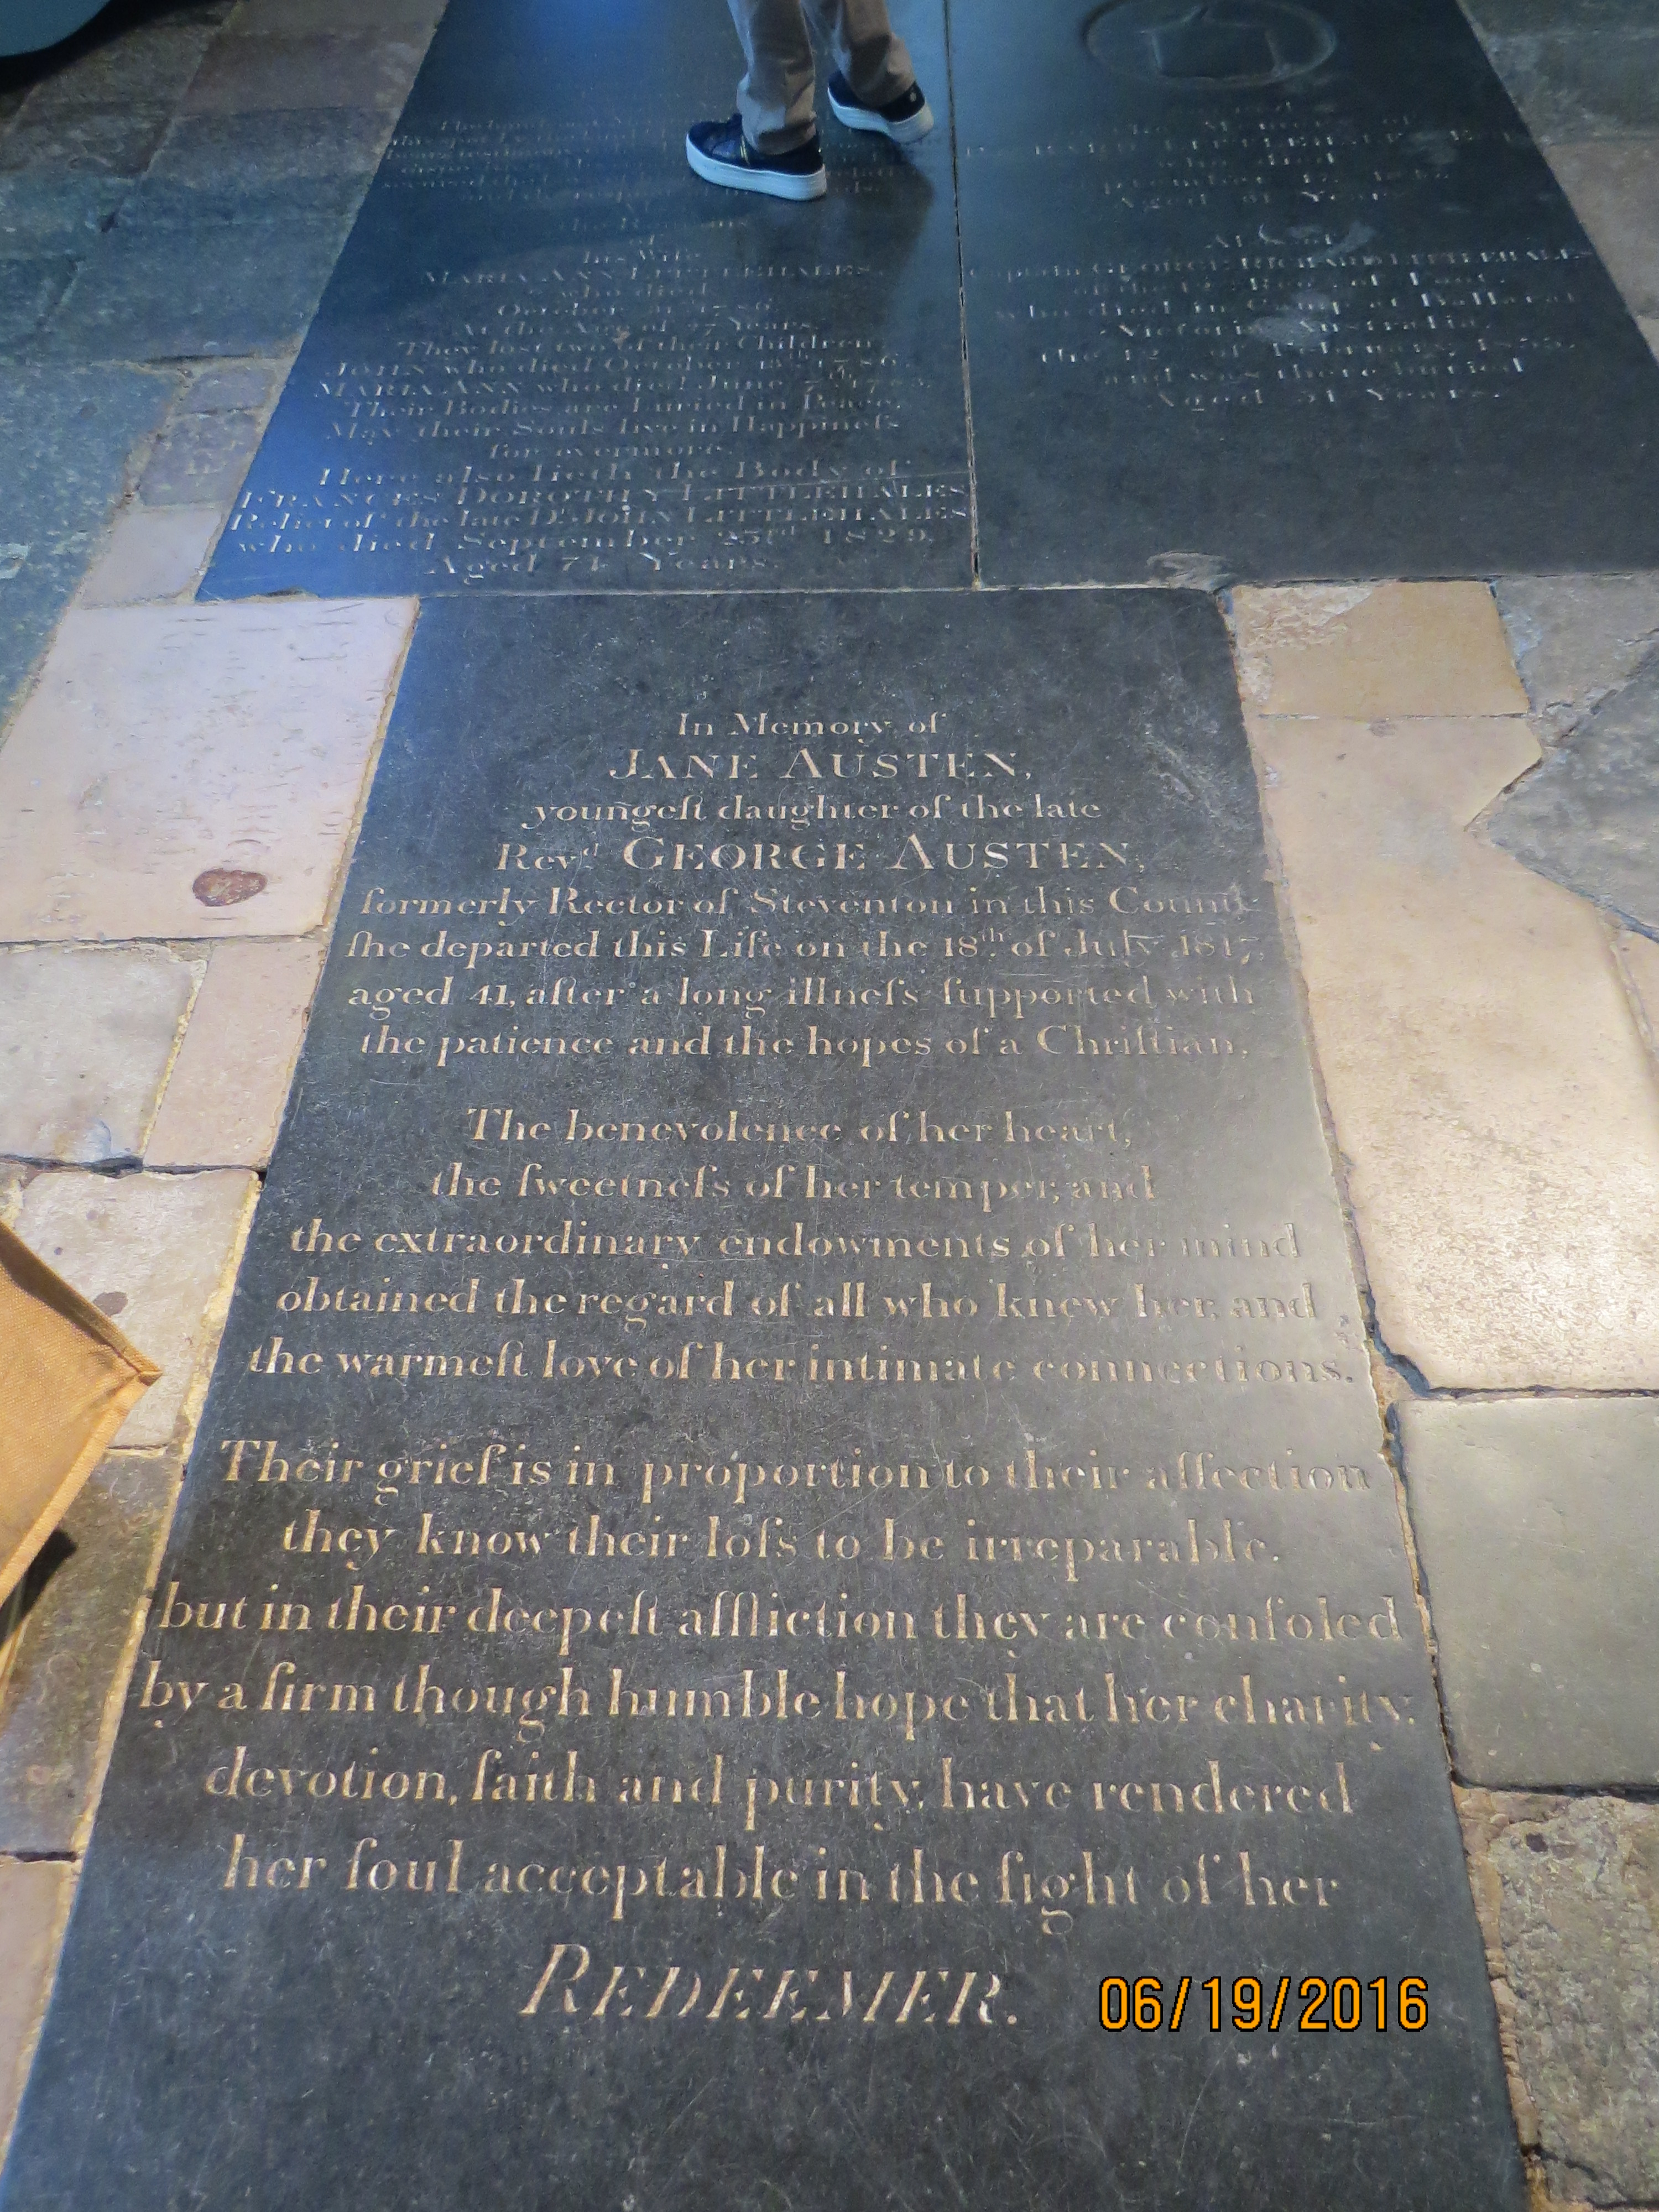 his Wife
MARIA ANN LITTLEHALES
who died
October
At the Age of 27 Years.
They lost two of their Children
JOHN who died October
MARIA ANN who died June
Their Bodies are buried in Peace,
May their Souls live in Happineſs
for evermore.
Here also lieth the Body of
FRANCES DOROTHY LITTLEHALES
Relict of the late Dr. JOHN LITTLEHALES
who died September 23rd 1829.
Aged 74 Years.
who died
Aged Years
Also of
Captain GEORGE RICHARD LITTLEHALES
of the Regt. of Foot,
who died in Camp at Ballarat
Victoria Australia,
the 12th of February
and was there buried
Aged Years.
In Memory of
JANE AUSTEN,
youngeſt daughter of the late
Revd GEORGE AUSTEN,
formerly Rector of Steventon in this County
ſhe departed this Life on the 18th of July 1817,
aged 41, after a long illneſs ſupported with
the patience and the hopes of a Chriſtian.
The benevolence of her heart,
the ſweetneſs of her temper, and
the extraordinary endowments of her mind
obtained the regard of all who knew her, and
the warmeſt love of her intimate connections.
Their grief is in proportion to their affection
they know their loſs to be irreparable.
but in their deepeſt affliction they are conſoled
by a firm though humble hope that her charity,
devotion, faith and purity, have rendered
her ſoul acceptable in the ſight of her
REDEEMER.
06/19/2016